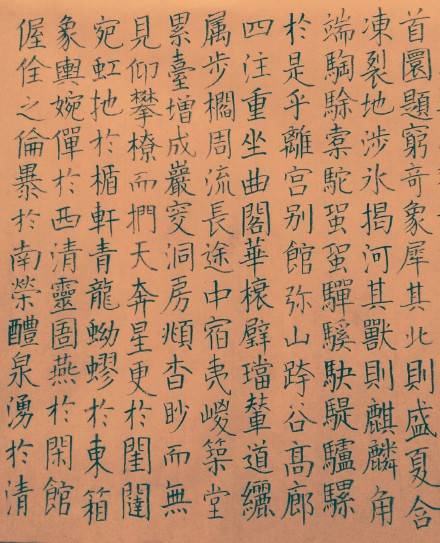 首圜題窮奇象犀其北則盛夏含
凍裂地涉氷揭河其獸則麒麟角
端騊駼橐駝蛩蛩驒騱駃騠驢騾
於是乎離宮别館弥山跨谷高廊
四注重坐曲閣華榱璧璫輦道纚
属步櫩周流長途中宿夷嵕築堂
累臺增成巖窔洞房頫杳眇而無
見仰攀橑而捫天奔星更於閨闥
宛虹扡於楯軒青龍蚴蟉於東箱
象輿婉僤於西清靈圄燕於閑館
偓佺之倫暴於南榮醴泉湧於清